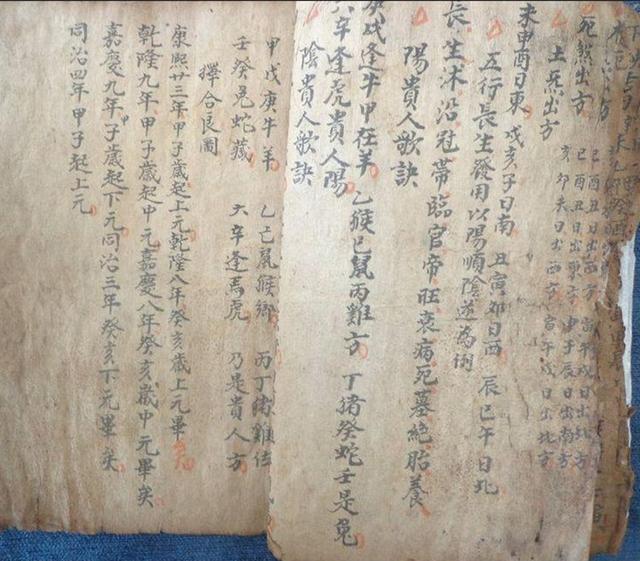 死炁出方
土炁出方
巳酉丑日出東方 申子辰日出南方
亥卯未日出西方 寅午戌日出北方
未申酉日東 戌亥子日南 丑寅卯日西 辰巳午日北
五行長生發用以陽順陰逆為例
長生沐沿冠帶臨官帝旺衰病死墓絕胎養
陽貴人歌訣
庚戌逢牛甲在羊 乙猴巳鼠丙雞方 丁猪癸蛇壬是兔
六辛逢虎貴人陽
陰貴人歌訣
甲戊庚牛羊 乙巳鼠猴鄉 丙丁猪雞位
壬癸兔蛇藏 六辛逢馬虎 乃是貴人方
擇合良圖
康熙廿三年甲子歲起上元乾隆八年癸亥歲上元畢
乾隆九年甲子歲起中元嘉慶八年癸亥歲中元畢矣
嘉慶九年子歲起下元同治三年癸亥下元畢矣
同治四年甲子起上元